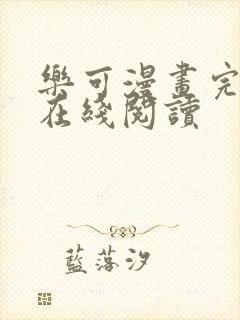 樂可漫畫完
在綫閱讀
藍落汐